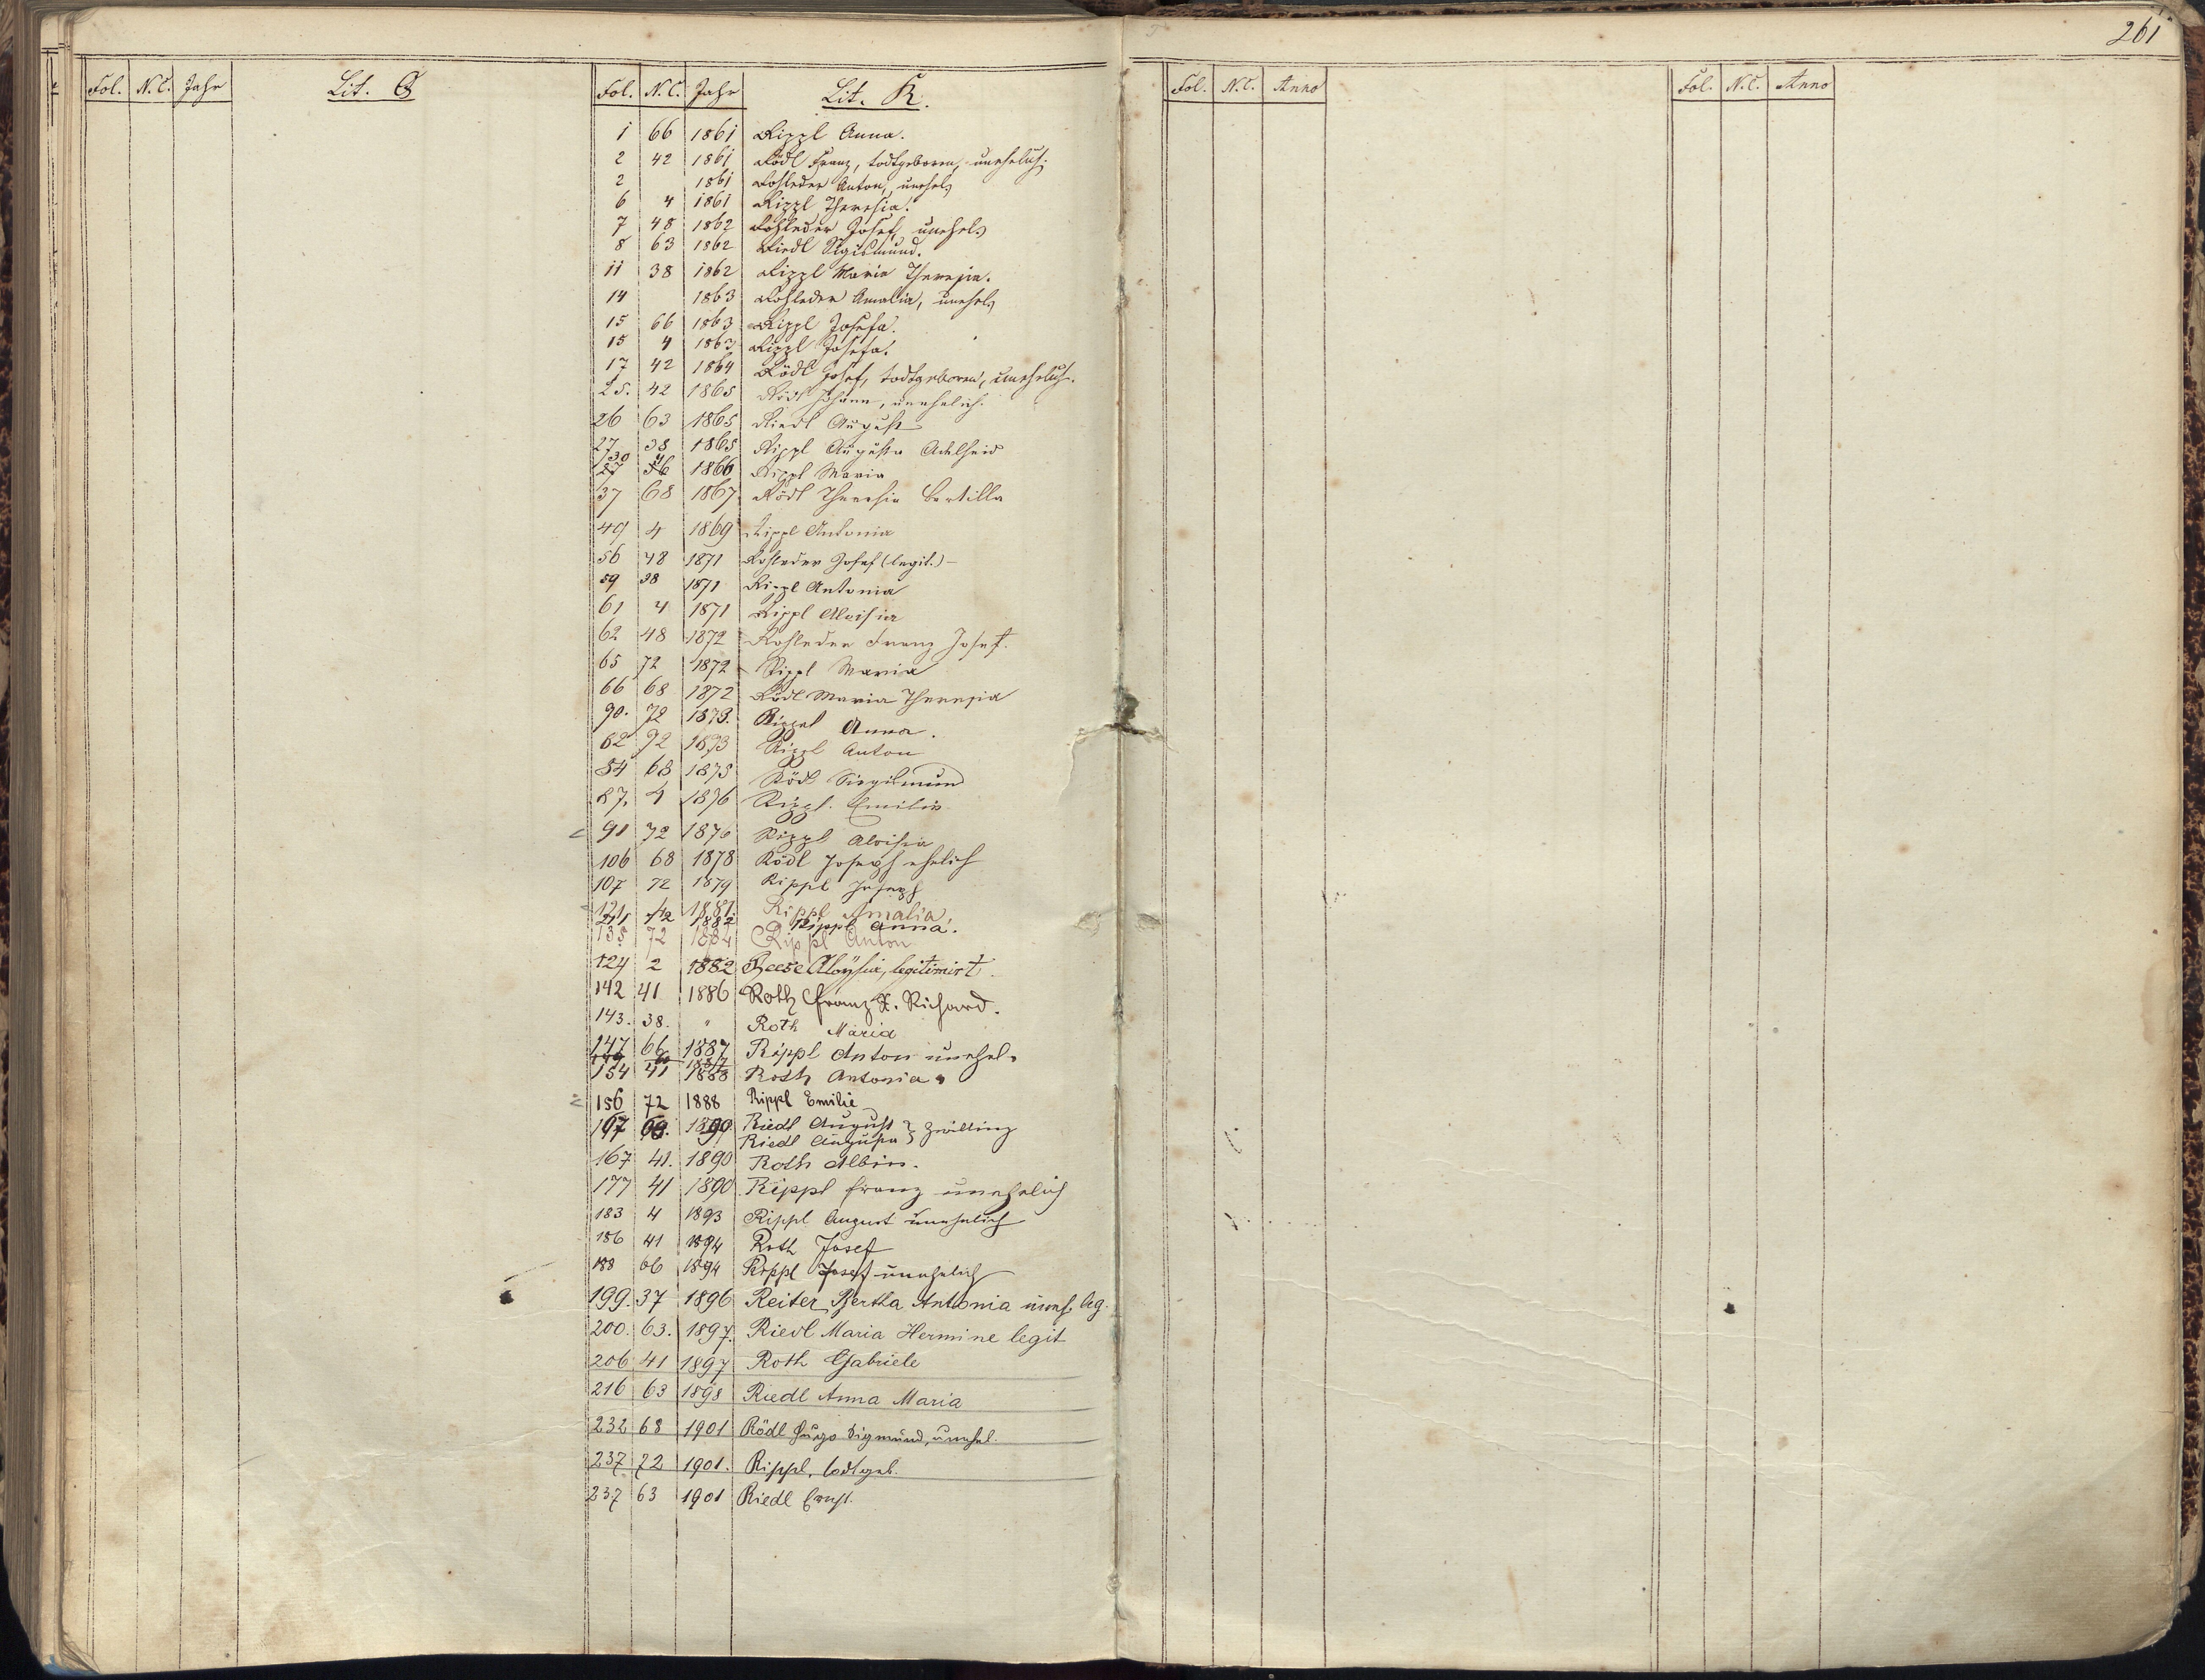 261
Fol. N.C. Jahr Lit. Q
Fol. N.C. Jahr Lit. R.
Fol. N.C. Anno
Fol. N.C. Anno
1 66 1861 Rippl Anna.
2 42 1861 Rödl Franz, todtgeboren, unehelich.
2 1861 Rohleder Anton, unehel.
6 4 1861 Rippl Theresia.
7 48 1862 Rohleder Josef, unehel.
8 63 1862 Riedl Sigismund.
11 38 1862 Rippl Maria Theresia.
14 1863 Rohleder Amalia, unehel.
15 66 1863 Rippl Josefa.
15 4 1863 Rippl Josefa.
17 42 1864 Rödl Josef, todtgeboren, unehelich.
25. 42 1865 Rödl Johann, unehelich.
26 63 1865 Riedl August
27 38 1865 Rippl Augusta Adelheid
30 4 1866 Rippl Maria
37 68 1867 Rödl Theresia Bertilla
49 4 1869 Rippl Antonia
56 48 1871 Rohleder Josef (legit.) –
59 38 1871 Rippl Antonia
61 4 1871 Rippl Aloisia
62 48 1872 Rohleder Franz Josef.
65 72 1872 Rippl Maria
66 68 1872 Rödl Maria Theresia
90. 72 1873. Rippel Anna.
82 72 1873 Rippl Anton
84 68 1875 Rödl Siegismund
87. 4 1876 Rippl. Emilie
91 72 1876 Rippl Aloisia
106 68 1878 Rödl Joseph ehelich
107 72 1879 Rippl Joseph
121 72 1881 Rippl Amalia
211 72 1882 Rippl Anna.
135 72 1884 Rippl Anton
124 2 1882 Reese Aloysia, legitimirt.
142 41 1886 Roth Franz X. Richard.
143. 38. " Roth Maria
147 66 1887 Rippl Anton unehel.
154 41 1888 Roth Antonia.
156 72 1888 Rippl Emilie
167 63. 1890 Riedl August } Zwilling
Riedl Augusta }
167 41. 1890 Roth Albin.
177 41 1890 Rippl Franz unehelich
183 4 1893 Rippl August unehelich
186 41 1894 Roth Josef
188 66 1894 Rippl Josef unehelich
199. 37 1896 Reiter Bertha Antonia uneh. leg.
200. 63. 1897. Riedl Maria Hermine legit
206 41 1897 Roth Gabriele
216 63 1898 Riedl Anna Maria
232 68 1901 Rödl Hugo Sigmund, unehel.
237 72 1901. Rippl, todtgeb.
237 63 1901 Riedl Ernst.